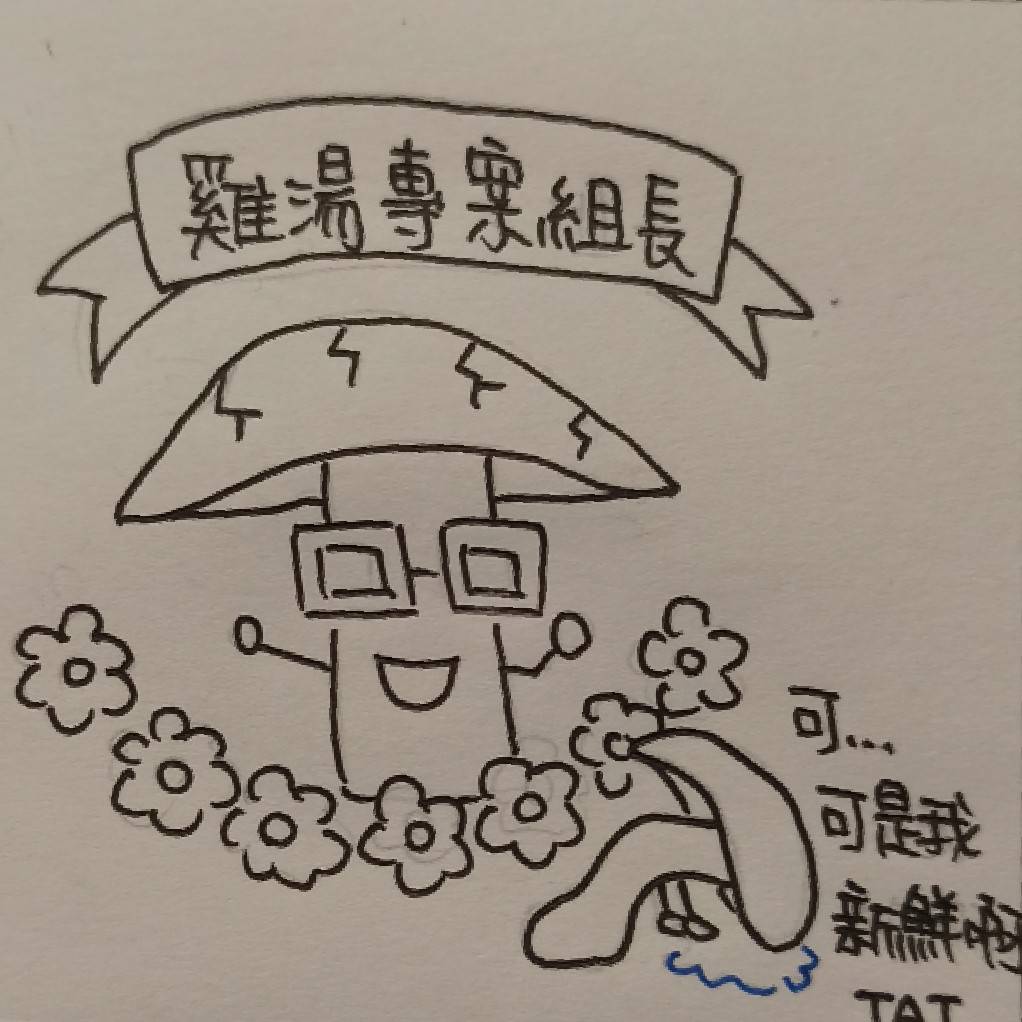 雞湯專案組長
可...
可是我
新鮮啊
TAT